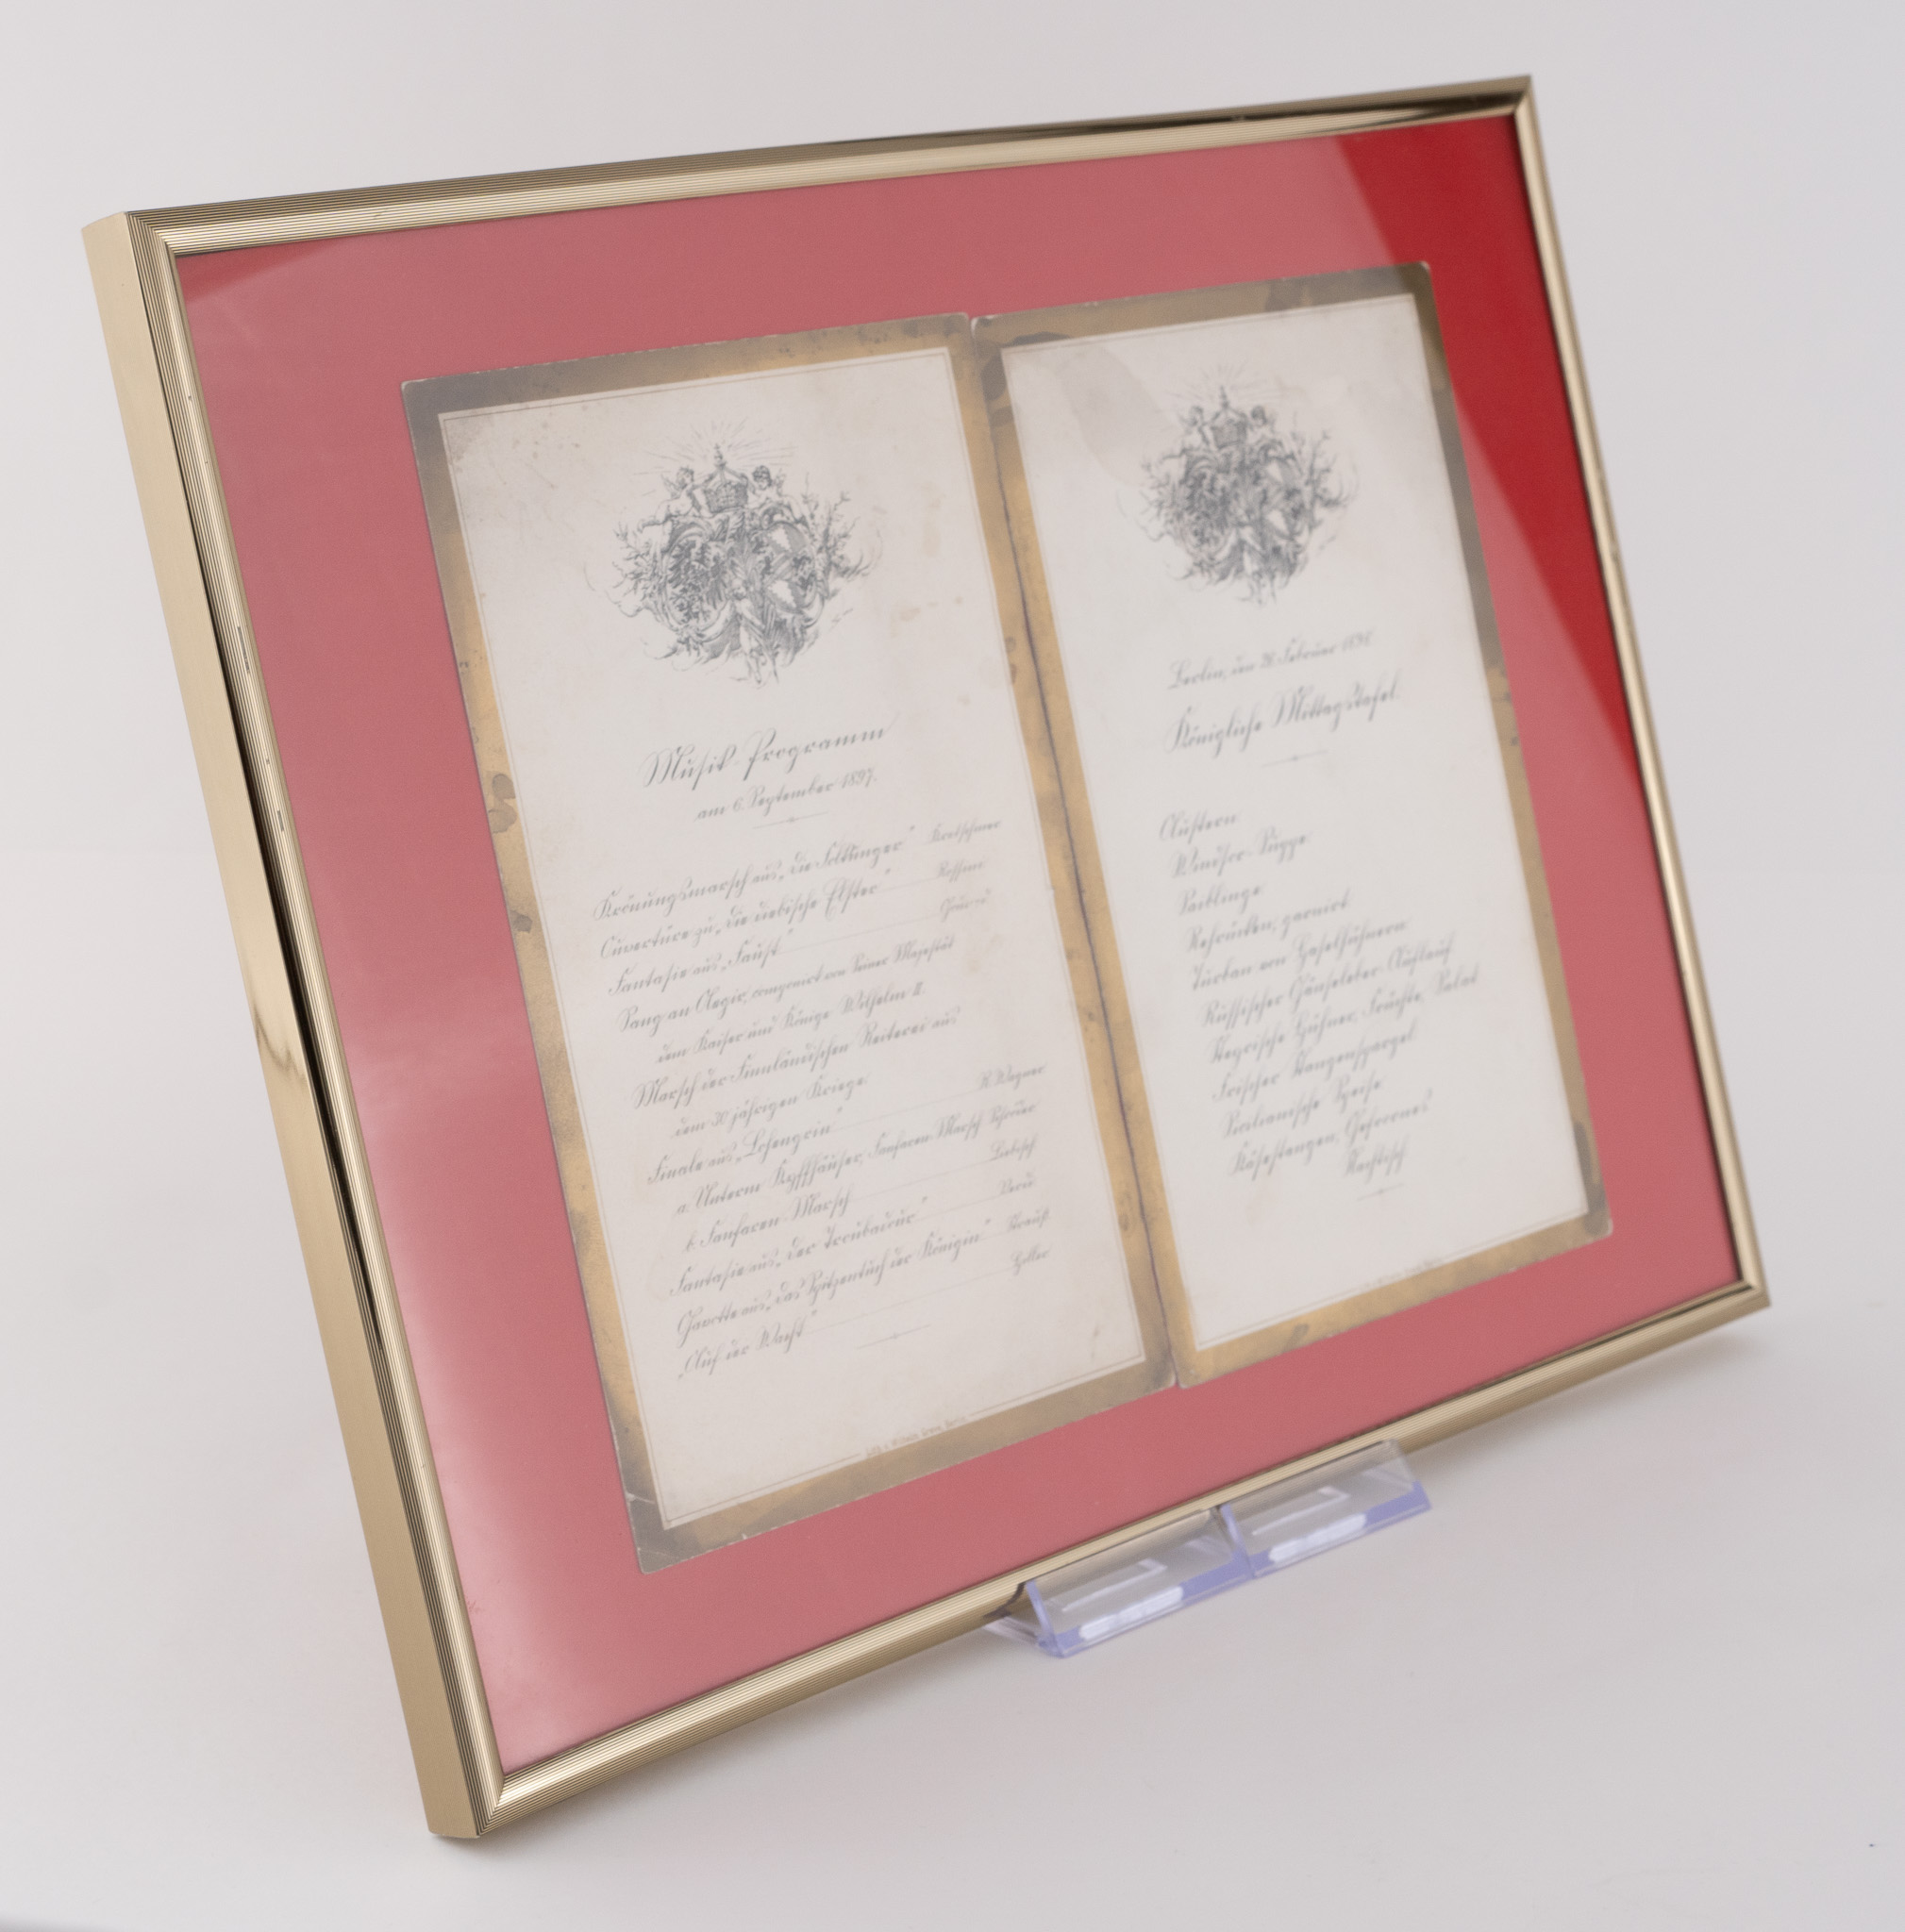 Musik-Programm
am 6. September 1897.
Krönungsmarsch aus „die Folkunger" Kretschmer
Ouverture zu „die diebische Elster" Rossini
Fantasie aus „Faust" Gounod
Sang an Aegir, componirt von Seiner Majestät
dem Kaiser und Könige Wilhelm II.
Marsch der Finnländischen Reiterei aus
dem 30 jährigen Kriege
Finale aus „Lohengrin" R. Wagner
a. Unterm Kyffhäuser, Fanfaren-Marsch
b. Fanfaren-Marsch Liebisch
Fantasie aus „der Troubadour" Verdi
Gavotte aus „das Spitzentuch der Königin" Strauß
„Auf der Wacht"
Lith. v. Wilhelm Greve, Berlin
Berlin, den Februar
Königliche Mittagstafel.
Austern
Windsor-Suppe
Saiblinge
Rehrücken, garnirt
Turban von Haselhühnern
Russischer Gänseleber-Auflauf
Steyrische Hühner, Früchte, Salat
Frischer Stangenspargel
Sicilianische Speise
Käsestangen, Gefrornes
Nachtisch